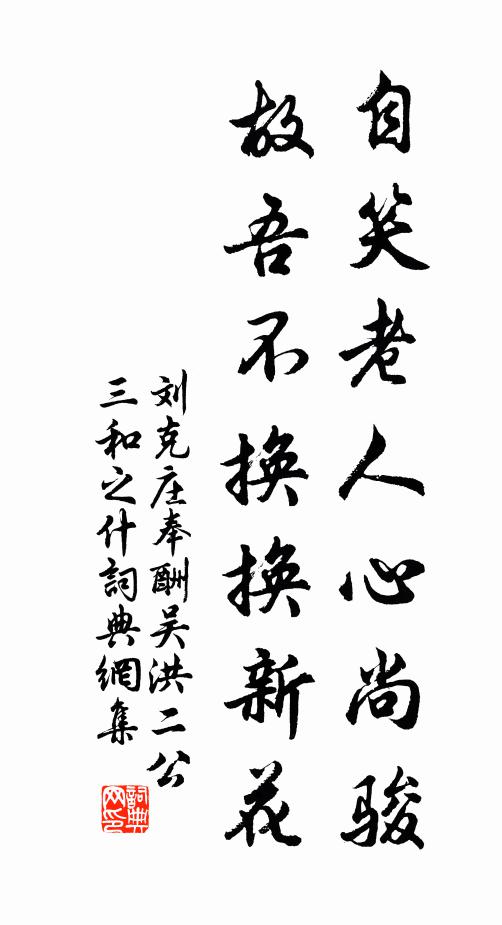 自笑老人心尚骏
故吾不换换新花
刘克庄奉酬吴洪二公
三和之什詞典網集
詞典
网印